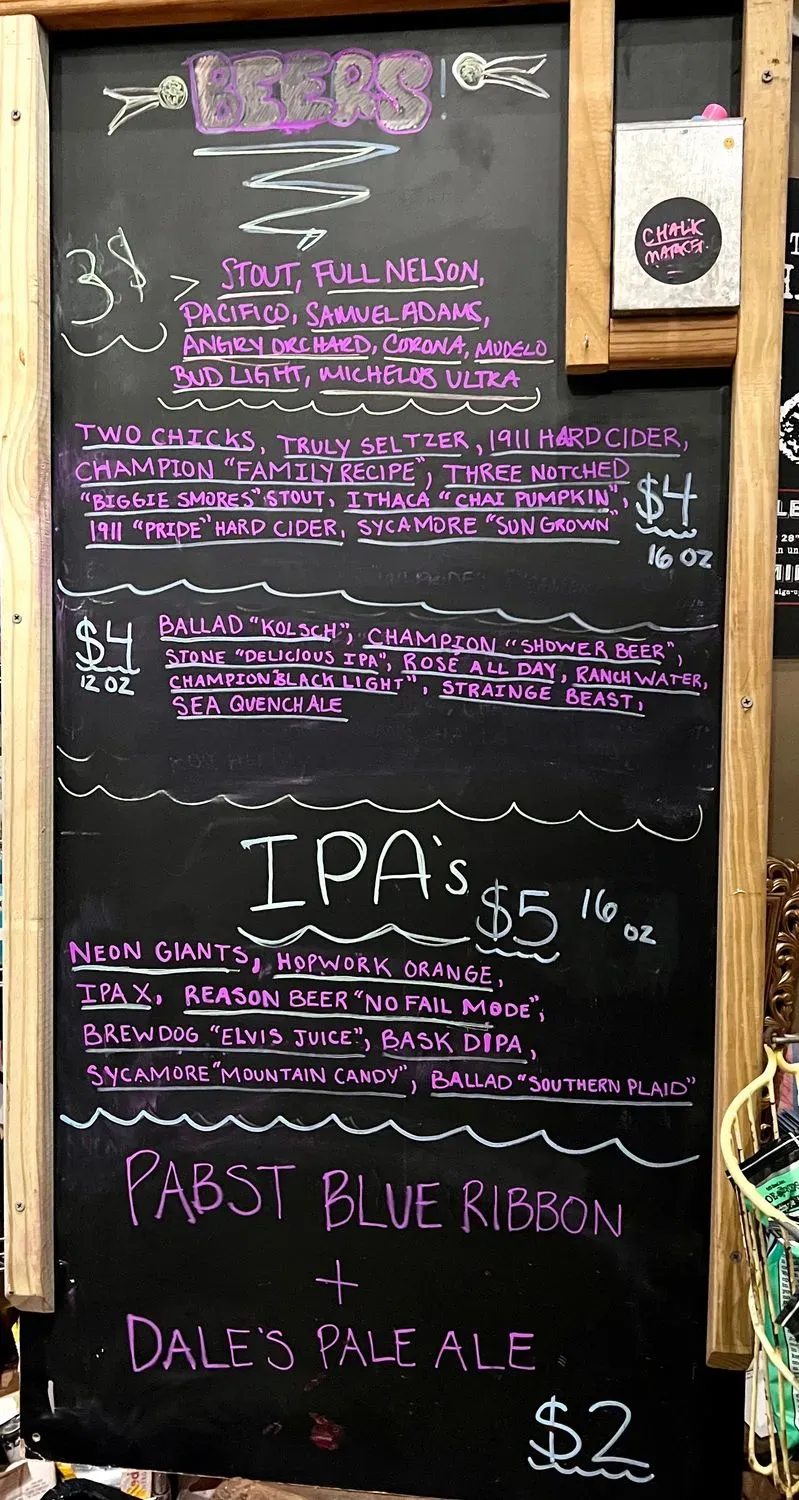 BEERS!
3$ > STOUT, FULL NELSON,
PACIFICO, SAMUEL ADAMS,
ANGRY ORCHARD, CORONA, MODELO
BUD LIGHT, MICHELOB ULTRA
TWO CHICKS, TRULY SELTZER, 1911 HARD CIDER,
CHAMPION "FAMILY RECIPE", THREE NOTCHED
"BIGGIE SMORES" STOUT, ITHACA "CHAI PUMPKIN",
1911 "PRIDE" HARD CIDER, SYCAMORE "SUN GROWN"
$4
16 OZ
$4
12 OZ
BALLAD "KOLSCH", CHAMPION "SHOWER BEER",
STONE "DELICIOUS IPA", ROSÉ ALL DAY, RANCH WATER,
CHAMPION "BLACK LIGHT", STRAINGE BEAST,
SEA QUENCH ALE
IPA's $5 16 oz
NEON GIANTS, HOPWORK ORANGE,
IPA X, REASON BEER "NO FAIL MODE",
BREWDOG "ELVIS JUICE", BASK DIPA,
SYCAMORE "MOUNTAIN CANDY", BALLAD "SOUTHERN PLAID"
PABST BLUE RIBBON
+
DALE'S PALE ALE
$2
CHALK
MARKER